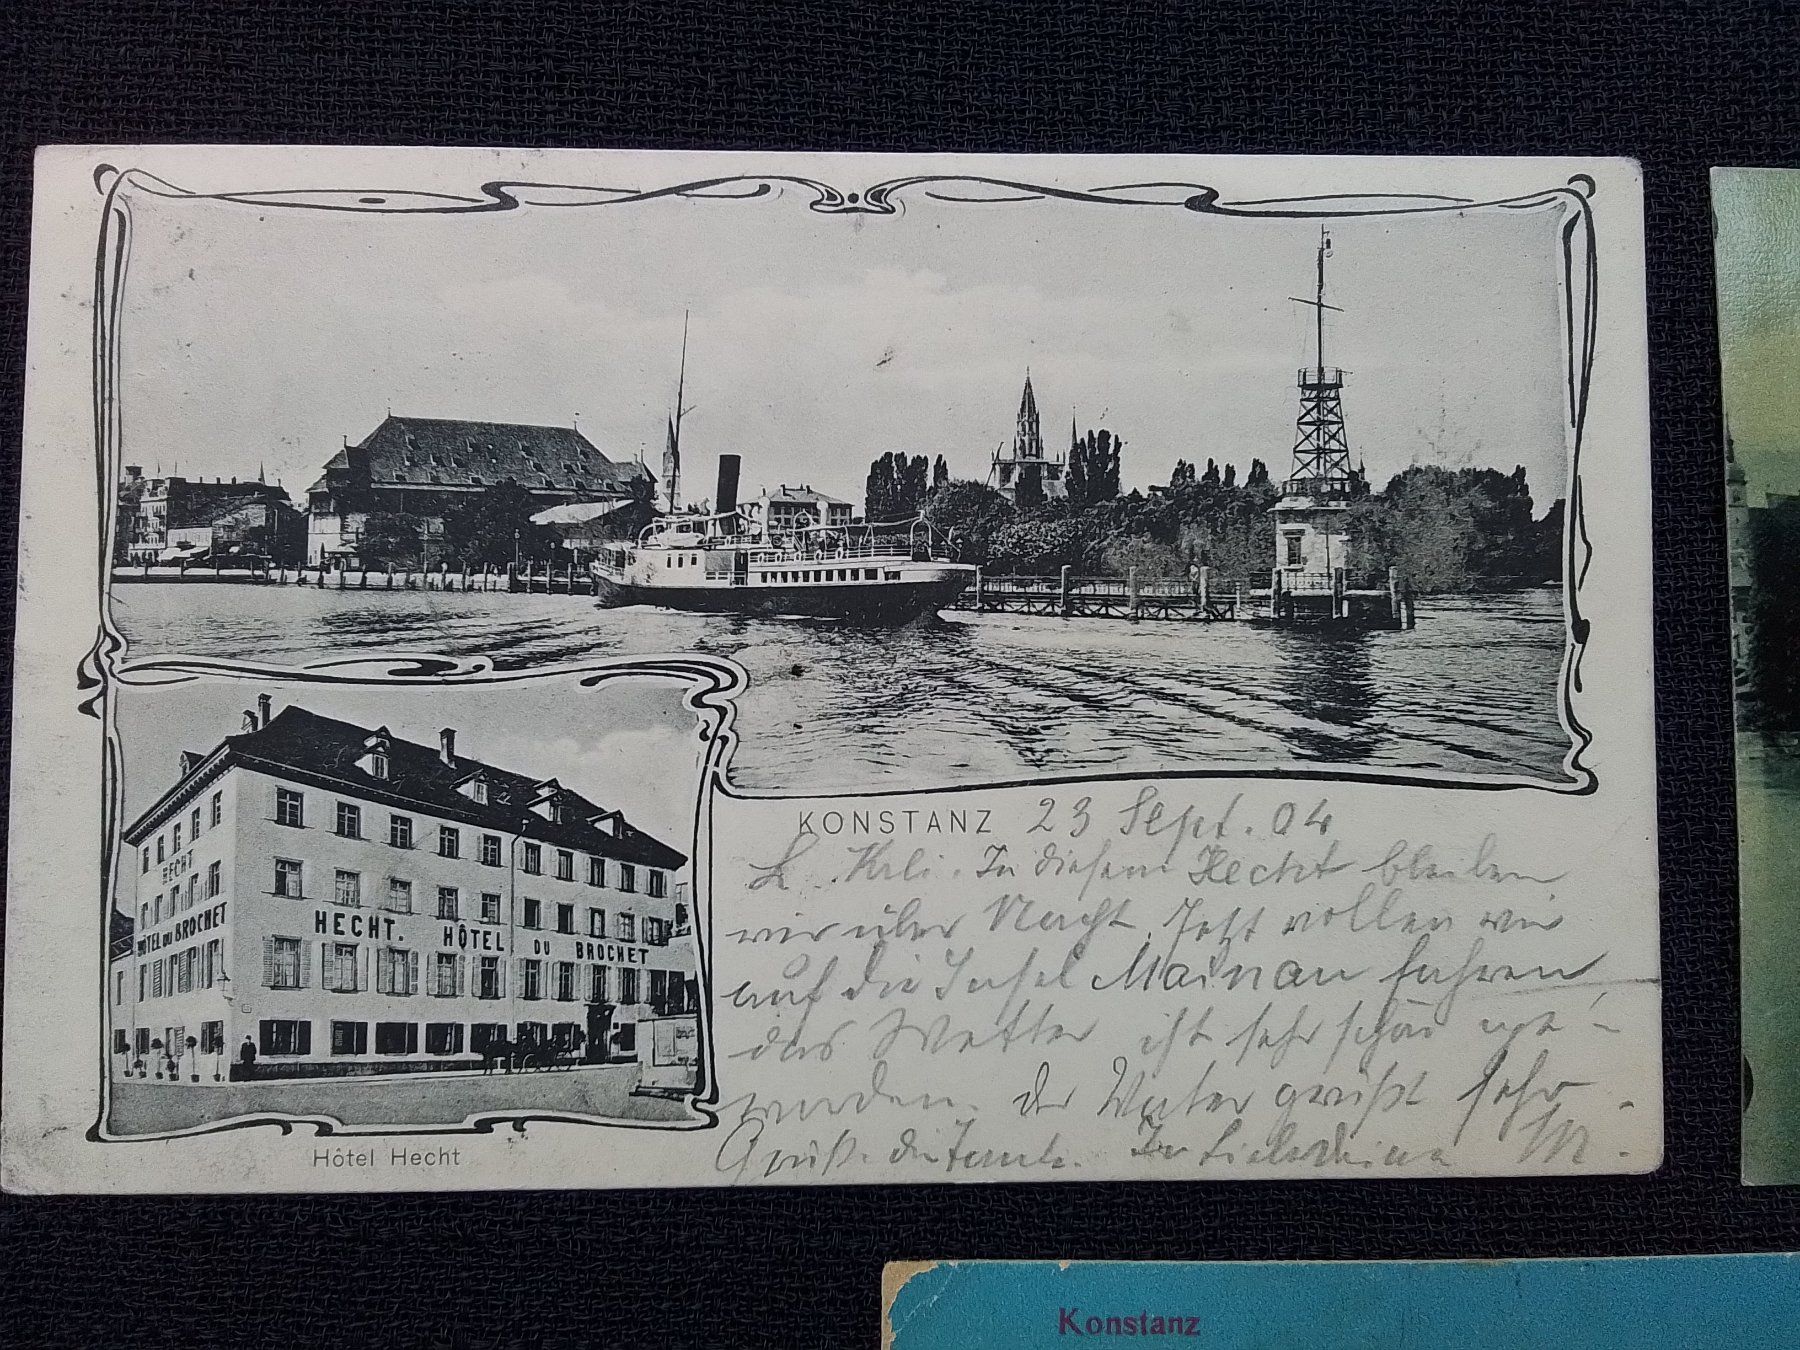 KONSTANZ 23 Sept. 04
In diesem Hecht bleiben
wir über Nacht. Jetzt wollen wir
auf die Insel Mainau fahren,
das Wetter ist sehr schön
worden. der Vater grüßt sehr
Grüße die Tante. M.
HECHT
HÔTEL DU BROCHET
HECHT. HÔTEL DU BROCHET
Hôtel Hecht
Konstanz